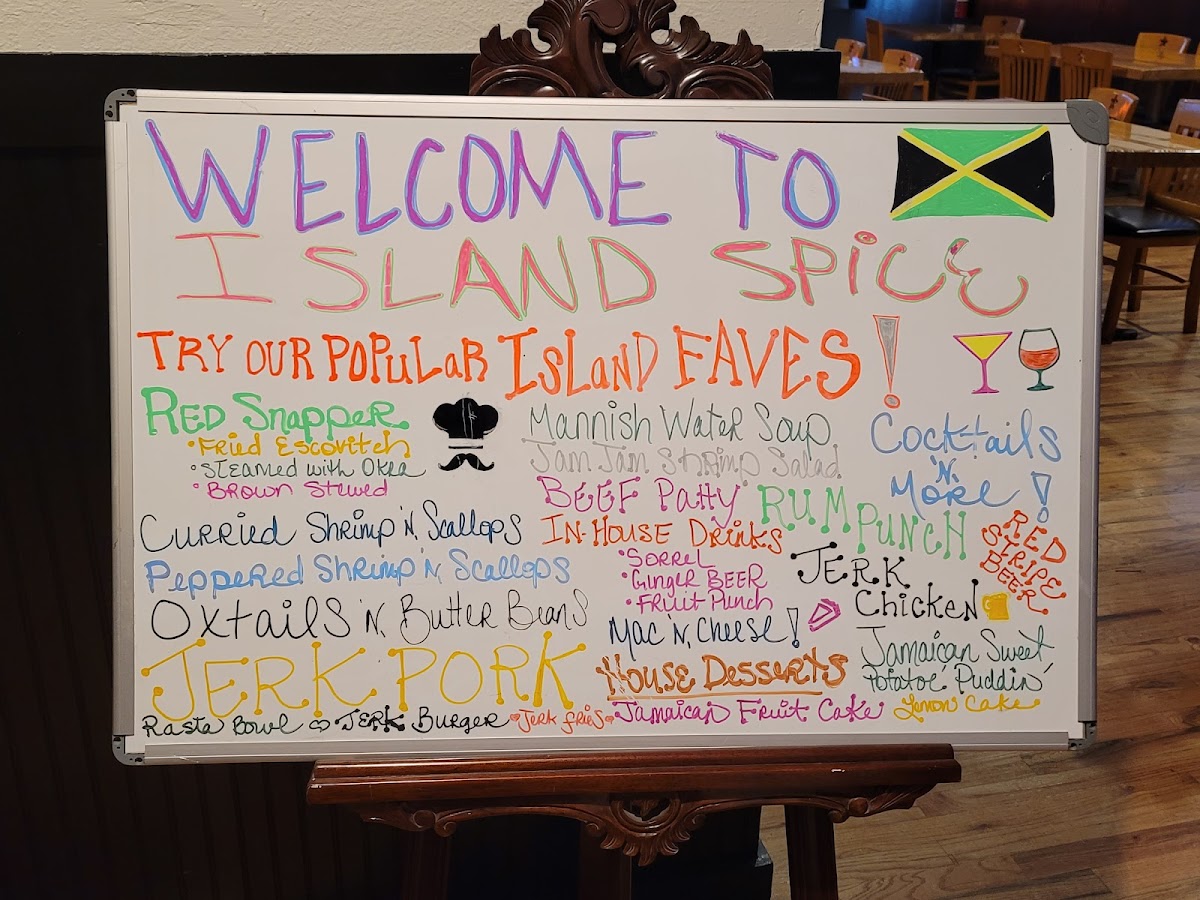 WELCOME TO
ISLAND SPICE
TRY OUR POPULAR ISLAND FAVES!
RED SNAPPER
• FRIED ESCOVITCH
• STEAMED WITH OKRA
• BROWN STEWED
CURRIED SHRIMP 'N SCALLOPS
PEPPERED SHRIMP 'N SCALLOPS
OXTAILS 'N BUTTER BEANS
JERK PORK
RASTA BOWL JERK BURGER JERK FRIES
MANNISH WATER SOUP
JAM JAM SHRIMP SALAD
BEEF PATTY
IN-HOUSE DRINKS
• SORREL
• GINGER BEER
• FRUIT PUNCH
MAC 'N CHEESE!
HOUSE DESSERTS
JAMAICAN FRUIT CAKE
COCKTAILS
'N
MORE!
RUM PUNCH
RED
STRIPE
BEER
JERK
CHICKEN
JAMAICAN SWEET
POTATOE PUDDIN'
LEMON CAKE